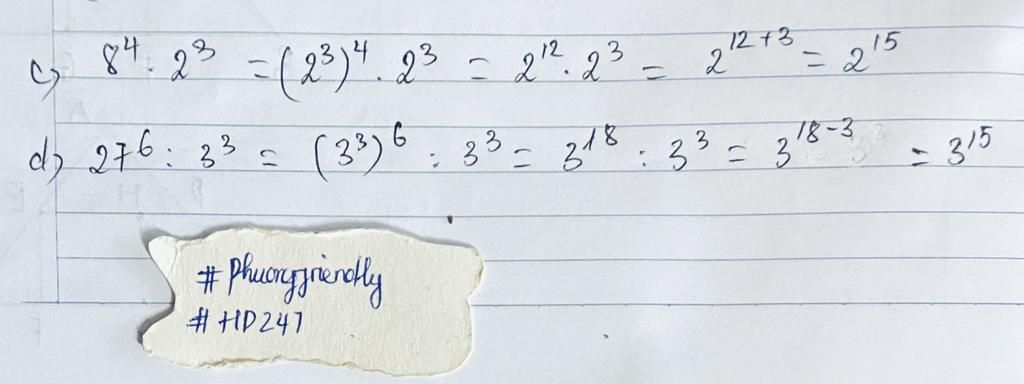 c) 8⁴ . 2³ = (2³)⁴ . 2³ = 2¹² . 2³ = 2¹²⁺³ = 2¹⁵
d) 27⁶ : 3³ = (3³)⁶ : 3³ = 3¹⁸ : 3³ = 3¹⁸⁻³ = 3¹⁵
# Phuongfriendly
# HD247